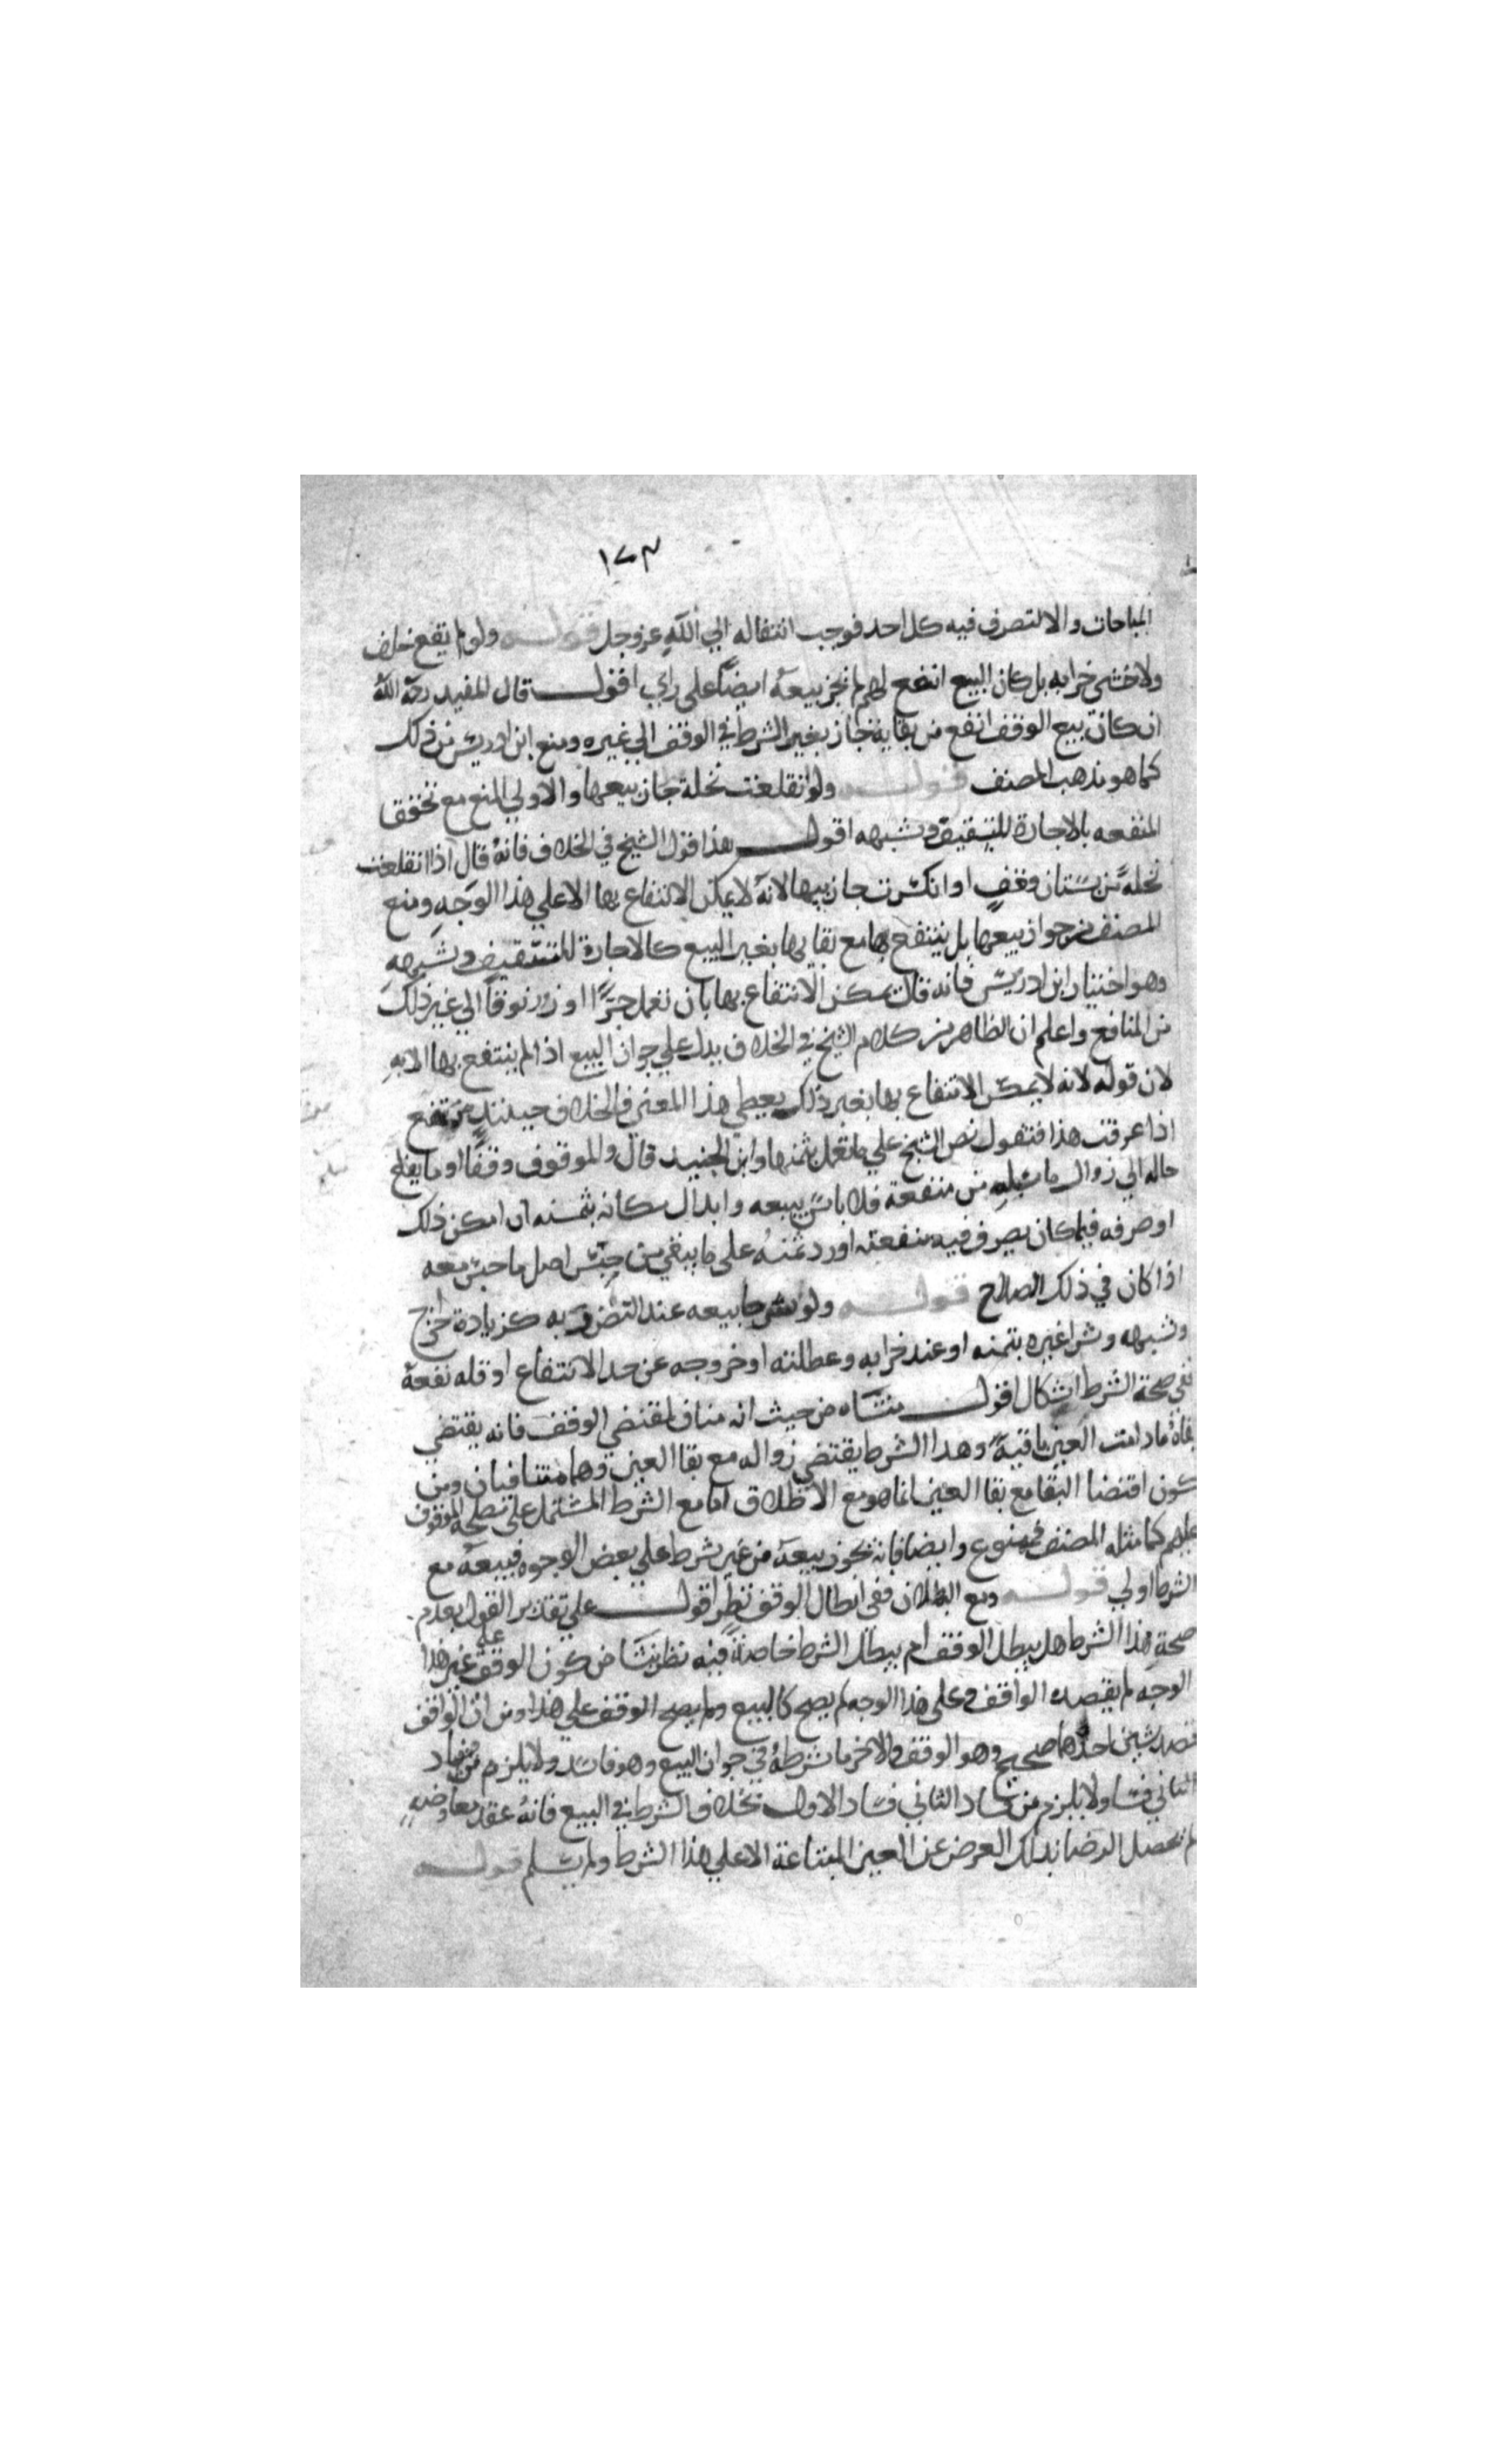 ١٧٣
المباحات والا لتصرف فيه كل احد فوجب انتقاله الي الله عز وجل قوله ولو لم يقع خلف
ولا خشي خرابه بل كان البيع انفع لهم لم يجز بيعه ايضا علي راي اقول قال المفيد رحمه الله
ان كان بيع الوقف انفع من بقايه جاز بغير الشرط في الوقف الي غيره ومنع ابن ادريس من ذلك
كما هو مذهب المصنف قوله ولو انقلعت نخلة جاز بيعها والاولي المنع مع تحقق
المنفعه بالاجارة للتسقيف وشبهه اقول هذا قول الشيخ في الخلاف فانه قال اذا انقلعت
نخلة من بستان وقف او انكسرت جاز بيعها لانه لا يمكن الانتفاع بها الا علي هذا الوجه ومنع
المصنف من جواز بيعها بل ينتفع بها مع بقايها بغير البيع كالاجارة للتسقيف وشبهه
وهو اختيار ابن ادريس فانه قال يمكن الانتفاع بها بان تعمل جسرا او زرنوقا الي غير ذلك
من المنافع واعلم ان الظاهر من كلام الشيخ في الخلاف يدل علي جواز البيع اذا لم ينتفع بها الا به
لان قوله لانه لا يمكن الانتفاع بها بغير ذلك يعطي هذا المعني فالخلاف حينئذ مرتفع
اذا عرفت هذا فنقول نص الشيخ علي ما نعمل بثمنها وابن الجنيد قال والموقوف وقفا او ما يغلغ
حاله الي زوال ما سبله من منفعة فلا باس ببيعه وابدال مكانه بثمنه ان امكن ذلك
او صرفه فيما كان يصرف فيه منفعته او رد ثمنه علي ما بقي من جنس اصل ما حبس معه
اذا كان في ذلك الصالح قوله ولو شرط بيعه عند التضرر به كزيادة خراج
وشبهه وشرا غيره بثمنه او عند خرابه وعطلته او خروجه عن حد الانتفاع او قله نفعه
ففي صحة الشرط اشكال اقول منشاه من حيث انه مناف لمقتضي الوقف فانه يقتضي
بقاه ما دامت العين باقية وهذا الشرط يقتضي زواله مع بقا العين وهما متنافيان ومن
كون اقتضا البقا مع بقا العين انما هو مع الاطلاق اما مع الشرط المشتمل علي مصلحة الموقوف
عليهم كما مثله المصنف فممنوع وايضا فانه يجوز بيعه من غير شرط علي بعض الوجوه فبيعه مع
الشرط اولي قوله ومع البطلان ففي ابطال الوقف نظر اقول علي تقدير القول بعدم
صحة هذا الشرط هل يبطل الوقف ام يبطل الشرط خاصة فيه نظر ينشا من كون الوقف علي غير هذا
الوجه لم يقصده الواقف وعلي هذا الوجه لم يصح كالبيع ولم يصح الوقف علي هذا ومن ان الواقف
قصد شيئين احدهما صحيح وهو الوقف والاخر ما شرطه في جواز البيع وهو فاسد ولا يلزم من فساد
الثاني فساد ولا يلزم من فساد الثاني فساد الاول بخلاف الشرط في البيع فانه عقد معاوضه
لم يحصل الرضا بذلك العوض عن العين المبتاعة الا علي هذا الشرط ولم يسلم قوله